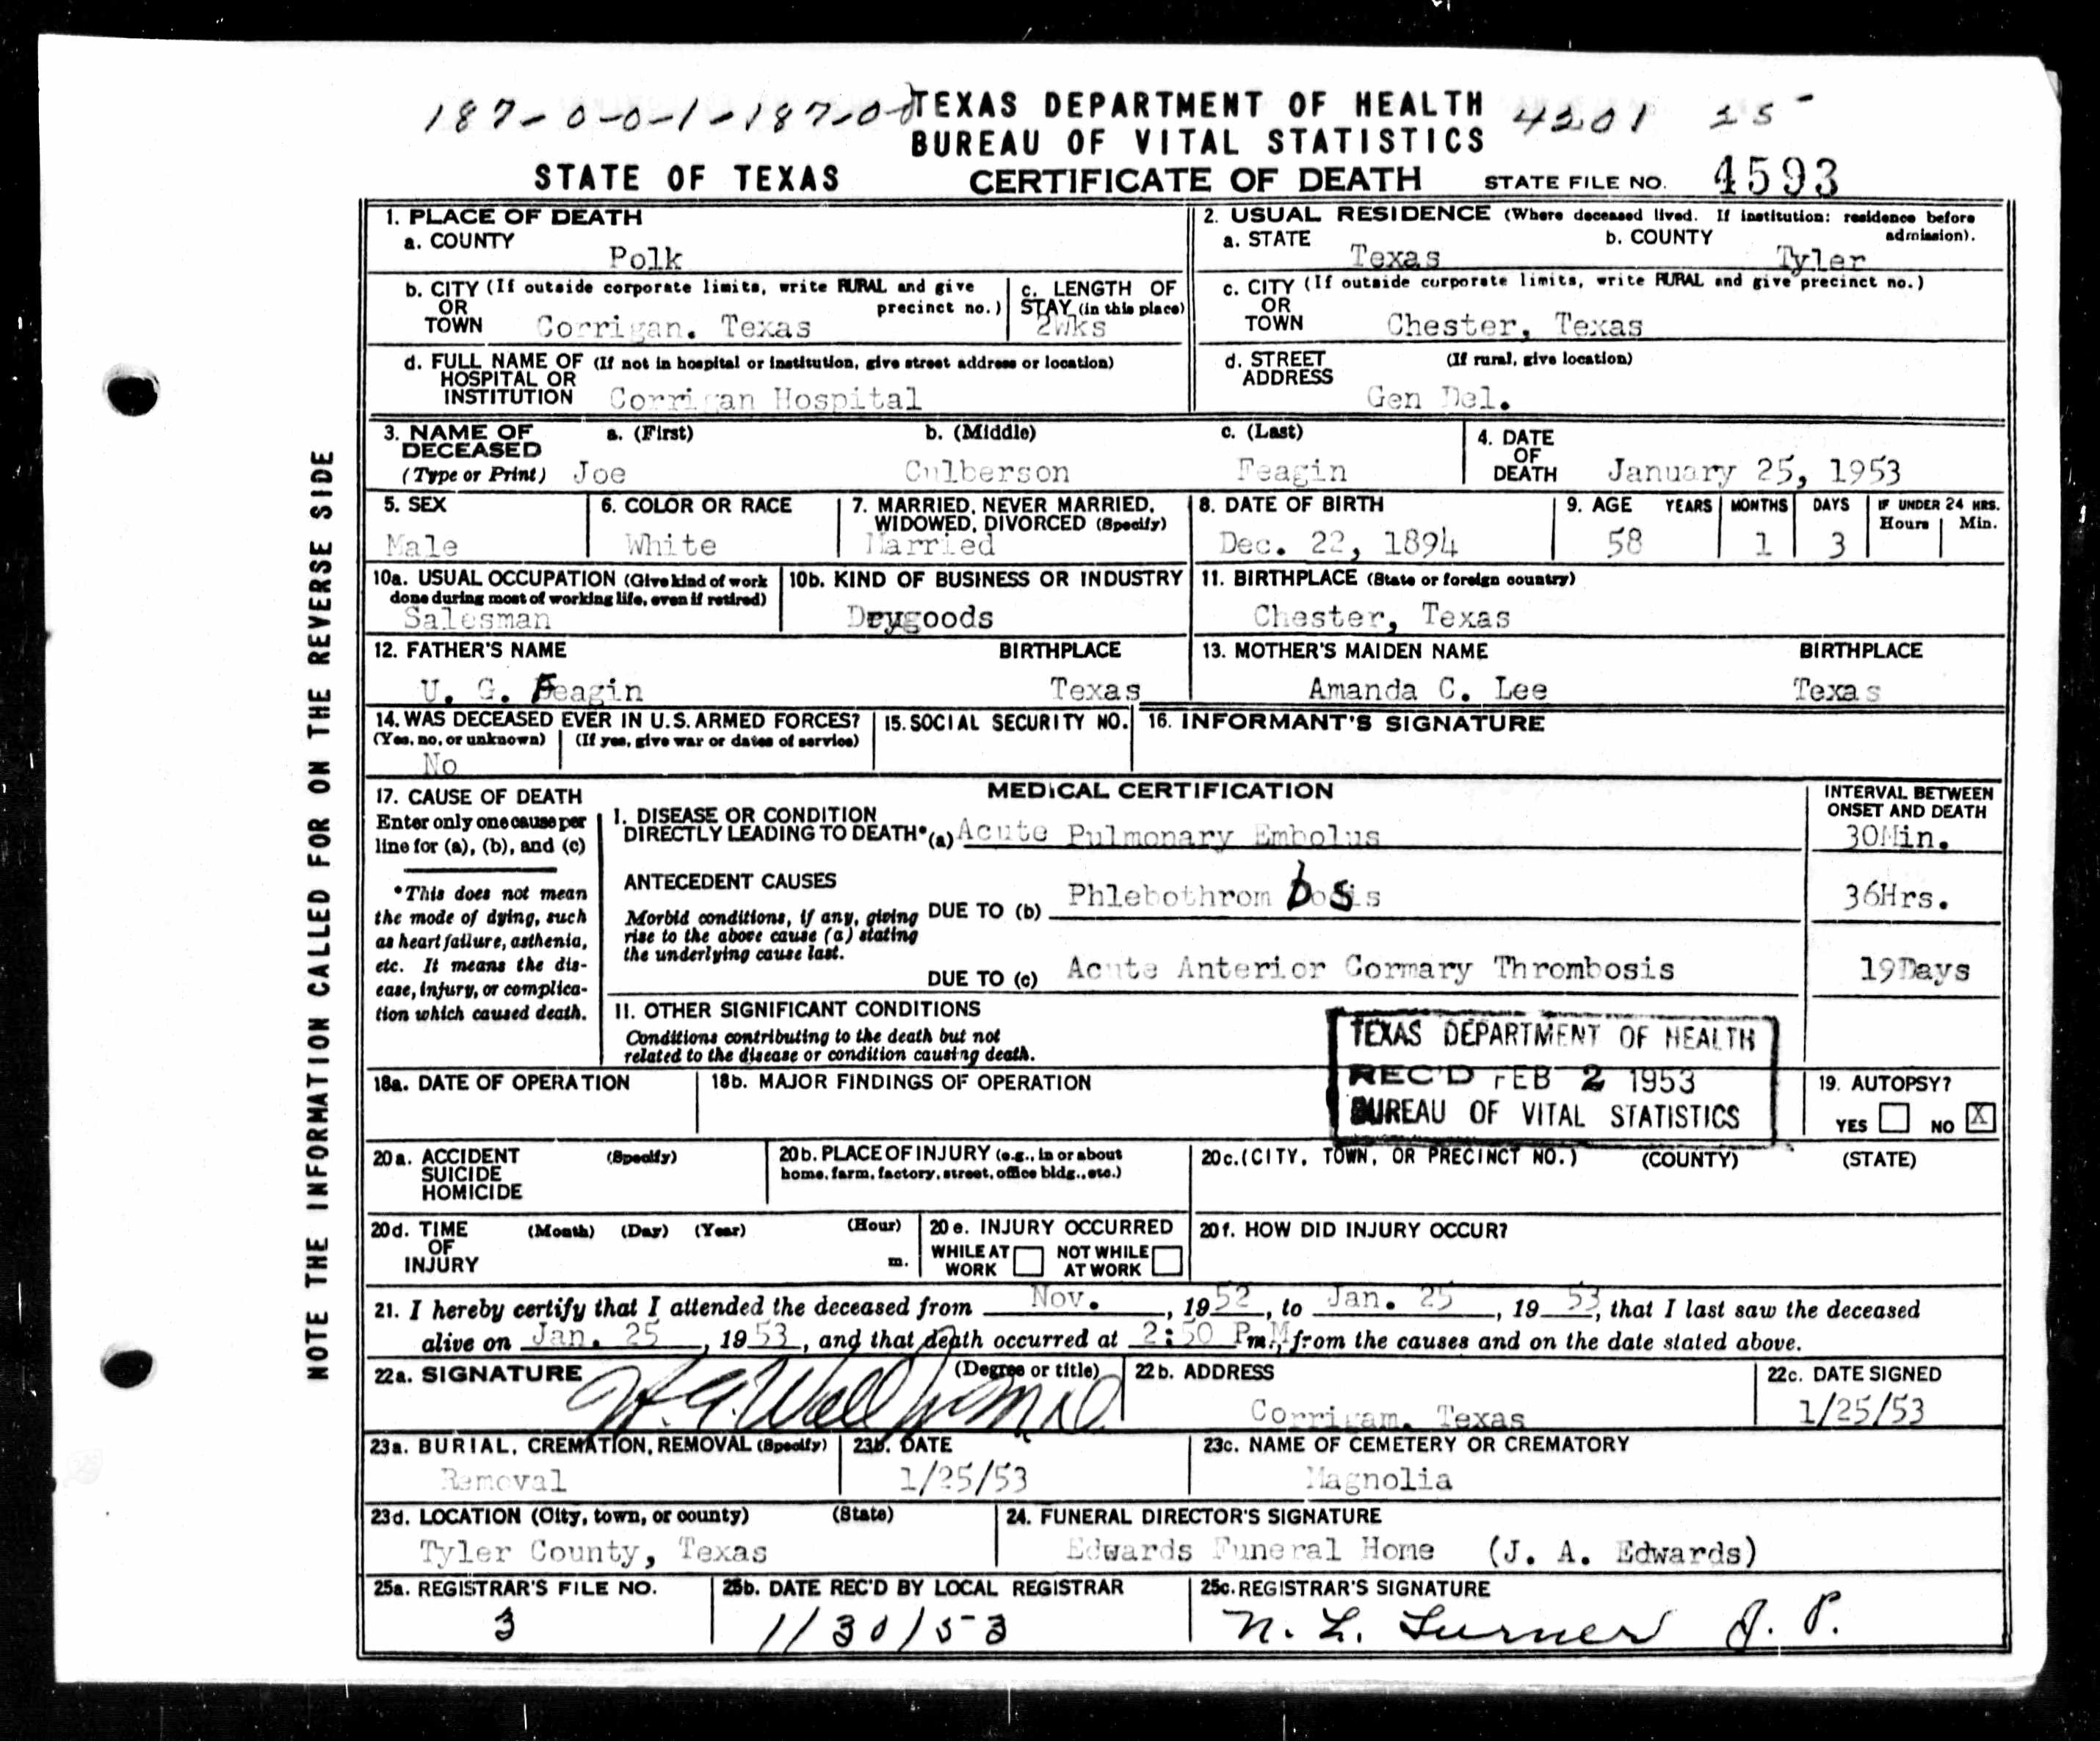 187-0-0-1-187-0-0 TEXAS DEPARTMENT OF HEALTH 4201 25-
BUREAU OF VITAL STATISTICS
STATE OF TEXAS CERTIFICATE OF DEATH STATE FILE NO. 4593
NOTE THE INFORMATION CALLED FOR ON THE REVERSE SIDE
1. PLACE OF DEATH
a. COUNTY
Polk
2. USUAL RESIDENCE (Where deceased lived. If institution: residence before admission).
a. STATE Texas b. COUNTY Tyler
b. CITY (If outside corporate limits, write RURAL and give precinct no.)
OR
TOWN Corrigan. Texas
c. LENGTH OF
STAY (in this place)
2Wks
c. CITY (If outside corporate limits, write RURAL and give precinct no.)
OR
TOWN Chester, Texas
d. FULL NAME OF (If not in hospital or institution, give street address or location)
HOSPITAL OR
INSTITUTION Corrigan Hospital
d. STREET (If rural, give location)
ADDRESS
Gen Del.
3. NAME OF a. (First) b. (Middle) c. (Last)
DECEASED
(Type or Print) Joe Culberson Feagin
4. DATE
OF
DEATH January 25, 1953
5. SEX
Male
6. COLOR OR RACE
White
7. MARRIED, NEVER MARRIED,
WIDOWED, DIVORCED (Specify)
Married
8. DATE OF BIRTH
Dec. 22, 1894
9. AGE YEARS MONTHS DAYS IF UNDER 24 HRS.
Hours Min.
58 1 3
10a. USUAL OCCUPATION (Give kind of work
done during most of working life, even if retired)
Salesman
10b. KIND OF BUSINESS OR INDUSTRY
Drygoods
11. BIRTHPLACE (State or foreign country)
Chester, Texas
12. FATHER'S NAME BIRTHPLACE
U. G. Feagin Texas
13. MOTHER'S MAIDEN NAME BIRTHPLACE
Amanda C. Lee Texas
14. WAS DECEASED EVER IN U.S. ARMED FORCES?
(Yes, no, or unknown) (If yes, give war or dates of service)
No
15. SOCIAL SECURITY NO.
16. INFORMANT'S SIGNATURE
17. CAUSE OF DEATH
Enter only one cause per
line for (a), (b), and (c)
*This does not mean
the mode of dying, such
as heart failure, asthenia,
etc. It means the dis-
ease, injury, or complica-
tion which caused death.
MEDICAL CERTIFICATION
INTERVAL BETWEEN
ONSET AND DEATH
I. DISEASE OR CONDITION
DIRECTLY LEADING TO DEATH* (a) Acute Pulmonary Embolus 30Min.
ANTECEDENT CAUSES
Morbid conditions, if any, giving
rise to the above cause (a) stating
the underlying cause last.
DUE TO (b) Phlebothrombosis 36Hrs.
DUE TO (c) Acute Anterior Cormary Thrombosis 19Days
II. OTHER SIGNIFICANT CONDITIONS
Conditions contributing to the death but not
related to the disease or condition causing death.
TEXAS DEPARTMENT OF HEALTH
REC'D FEB 2 1953
BUREAU OF VITAL STATISTICS
18a. DATE OF OPERATION
18b. MAJOR FINDINGS OF OPERATION
19. AUTOPSY?
YES NO X
20a. ACCIDENT (Specify)
SUICIDE
HOMICIDE
20b. PLACE OF INJURY (e.g., in or about
home, farm, factory, street, office bldg., etc.)
20c. (CITY, TOWN, OR PRECINCT NO.) (COUNTY) (STATE)
20d. TIME (Month) (Day) (Year) (Hour)
OF
INJURY m.
20e. INJURY OCCURRED
WHILE AT WORK NOT WHILE AT WORK
20f. HOW DID INJURY OCCUR?
21. I hereby certify that I attended the deceased from Nov. , 1952, to Jan. 25 , 19 53, that I last saw the deceased
alive on Jan. 25 , 1953, and that death occurred at 2:50 P.M m., from the causes and on the date stated above.
22a. SIGNATURE (Degree or title)
22b. ADDRESS
Corrigam. Texas
22c. DATE SIGNED
1/25/53
23a. BURIAL, CREMATION, REMOVAL (Specify)
Removal
23b. DATE
1/25/53
23c. NAME OF CEMETERY OR CREMATORY
Magnolia
23d. LOCATION (City, town, or county) (State)
Tyler County, Texas
24. FUNERAL DIRECTOR'S SIGNATURE
Edwards Funeral Home (J. A. Edwards)
25a. REGISTRAR'S FILE NO.
3
25b. DATE REC'D BY LOCAL REGISTRAR
1/30/53
25c. REGISTRAR'S SIGNATURE
N. L. Turner J. P.